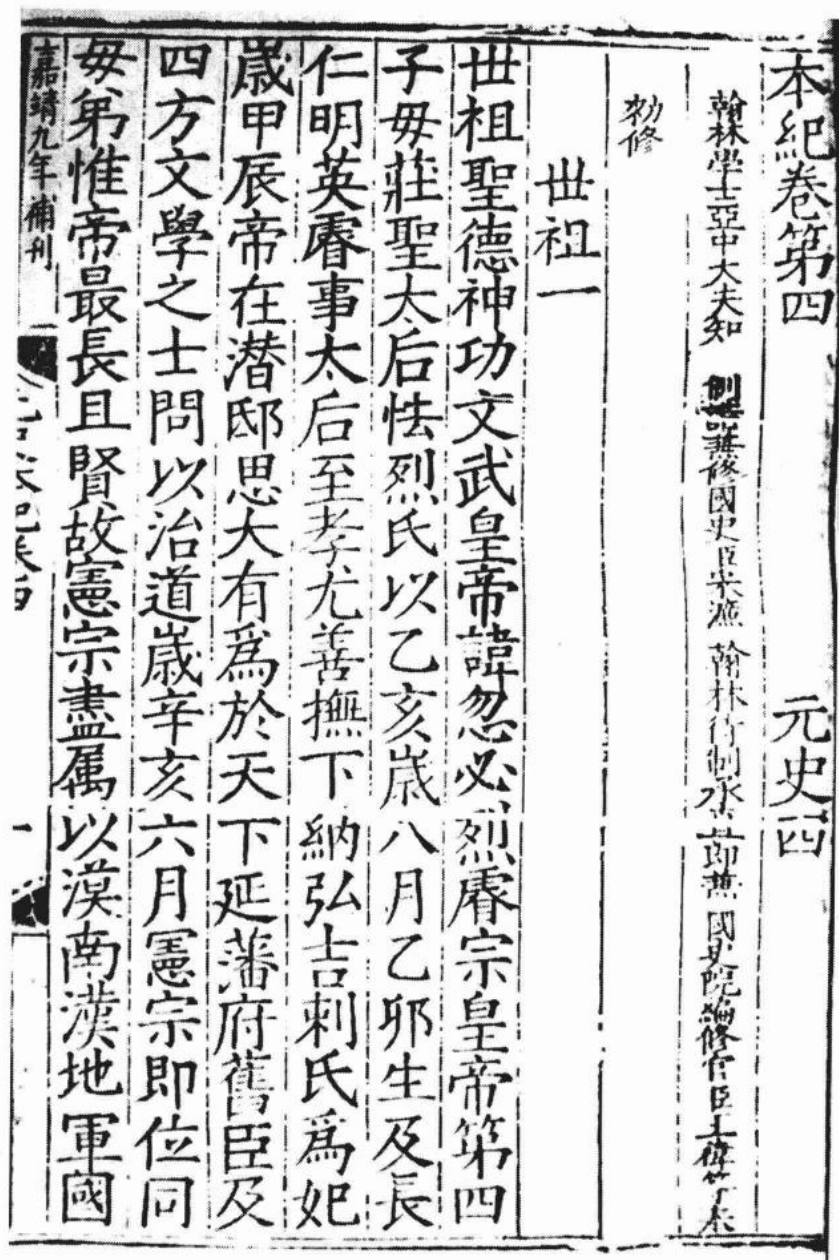 本紀卷第四　元史四
翰林學士亞中大夫知制誥兼修國史臣宋濂　翰林待制承直郎兼國史院編修官臣王禕等奉
勑修
世祖一
世祖聖德神功文武皇帝諱忽必烈睿宗皇帝第四
子母莊聖太后怯烈氏以乙亥歲八月乙卯生及長
仁明英睿事太后至孝尤善撫下納弘吉剌氏爲妃
歲甲辰帝在潛邸思大有爲於天下延藩府舊臣及
四方文學之士問以治道歲辛亥六月憲宗即位同
母弟惟帝最長且賢故憲宗盡属以漠南漢地軍國
嘉靖九年補刊